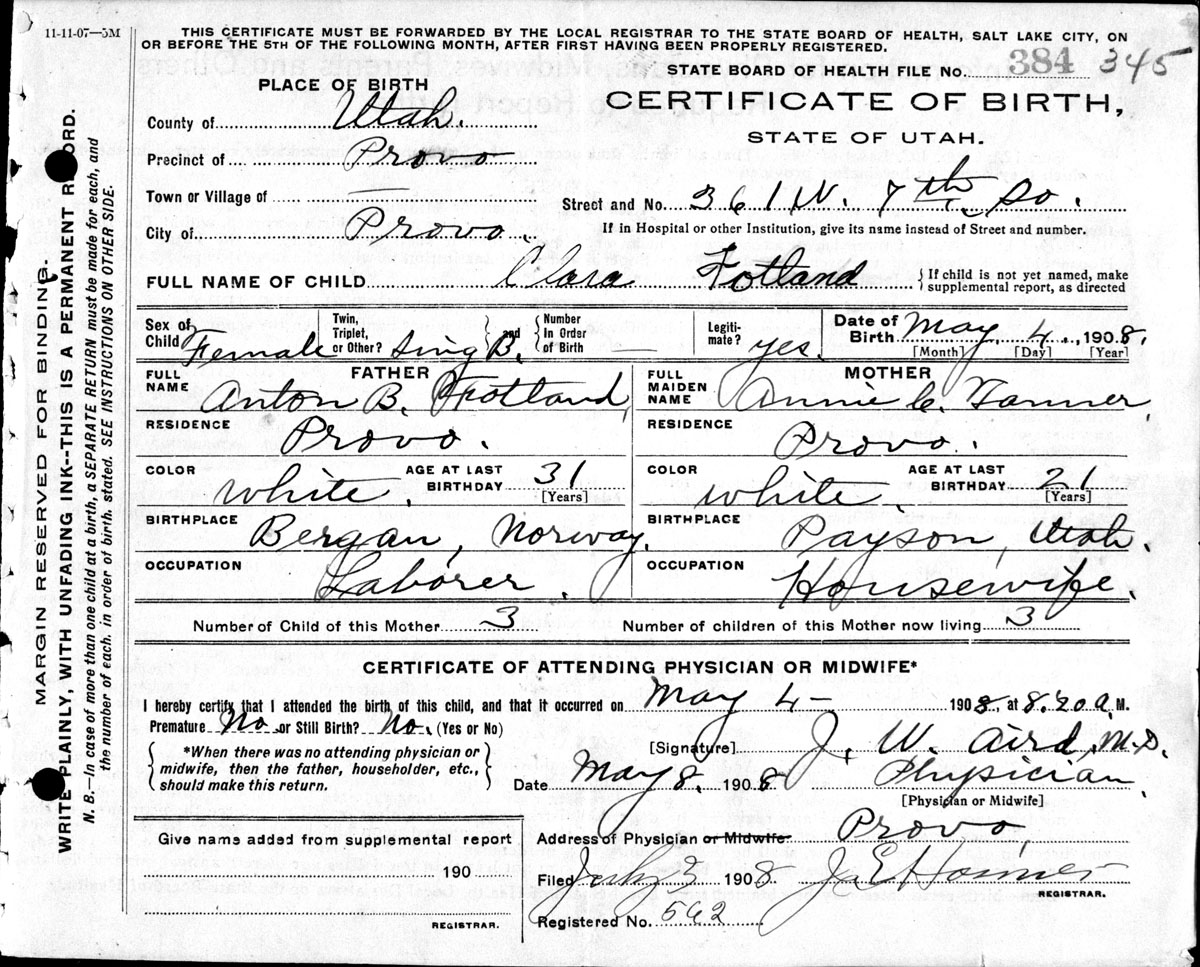 11-11-07—5M
THIS CERTIFICATE MUST BE FORWARDED BY THE LOCAL REGISTRAR TO THE STATE BOARD OF HEALTH, SALT LAKE CITY, ON
OR BEFORE THE 5TH OF THE FOLLOWING MONTH, AFTER FIRST HAVING BEEN PROPERLY REGISTERED.
STATE BOARD OF HEALTH FILE No. 384 345
PLACE OF BIRTH
CERTIFICATE OF BIRTH,
STATE OF UTAH.
County of Utah.
Precinct of Provo
Town or Village of —
Street and No. 361 W. 7th So.
City of Provo.
If in Hospital or other Institution, give its name instead of Street and number.
FULL NAME OF CHILD Clara Fotland {If child is not yet named, make
supplemental report, as directed
Sex of Child Female
Twin, Triplet, or Other? Sing B. and
Number In Order of Birth —
Legiti-mate? yes.
Date of Birth May 4., 1908.
[Month] [Day] [Year]
FATHER
MOTHER
FULL NAME Anton B. Fotland,
FULL MAIDEN NAME Annie C. Tanner,
RESIDENCE Provo.
RESIDENCE Provo.
COLOR white. AGE AT LAST BIRTHDAY 31 [Years]
COLOR white. AGE AT LAST BIRTHDAY 21 [Years]
BIRTHPLACE Bergan, Norway.
BIRTHPLACE Payson, Utah.
OCCUPATION Laborer.
OCCUPATION Housewife.
Number of Child of this Mother 3 Number of children of this Mother now living 3
CERTIFICATE OF ATTENDING PHYSICIAN OR MIDWIFE*
I hereby certify that I attended the birth of this child, and that it occurred on May 4— 1908, at 8.20 a.M.
Premature No or Still Birth? No. (Yes or No)
{*When there was no attending physician or
midwife, then the father, householder, etc.,
should make this return.}
[Signature] J. W. Aird, M.D.
Date May 8. 1908 Physician,
[Physician or Midwife]
Address of Physician or Midwife Provo,
Give name added from supplemental report
190
REGISTRAR.
Filed July 3 1908
REGISTRAR.
Registered No. 562
MARGIN RESERVED FOR BINDING.
WRITE PLAINLY, WITH UNFADING INK--THIS IS A PERMANENT RECORD.
N. B.—In case of more than one child at a birth, a SEPARATE RETURN must be made for each, and
the number of each, in order of birth, stated. SEE INSTRUCTIONS ON OTHER SIDE.